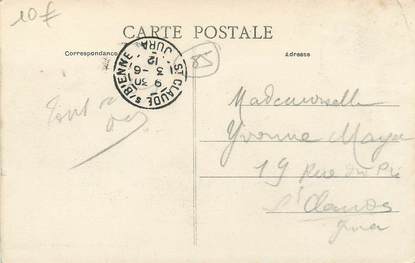 10€
CARTE POSTALE
Correspondance
Adresse
ST CLAUDE S/BIENNE
JURA
9 30
3 -6
12
85
Mademoiselle
Yvonne
19 Rue du Pré
St Claude
Jura